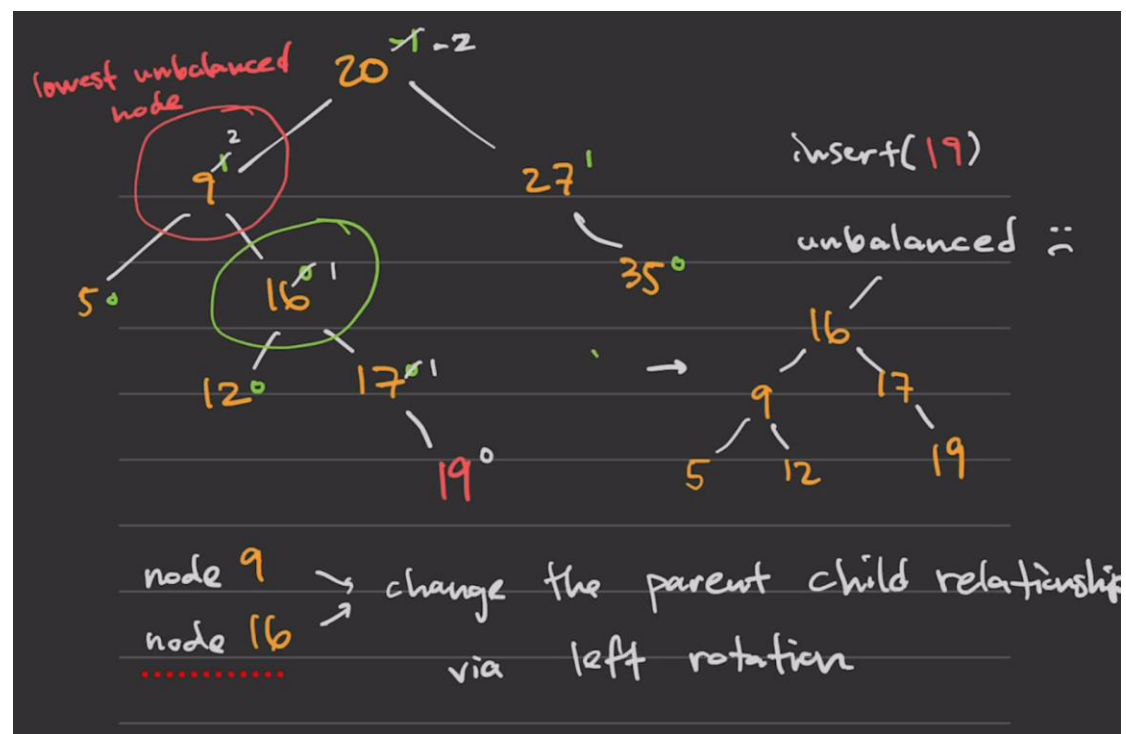 lowest unbalanced
node
20 -1 -2
9 1 2
27 1
insert(19)
unbalanced :(
5 0
16 0 1
35 0
16
12 0
17 0 1
9
17
19 0
5
12
19
node 9
node 16
change the parent child relationship
via left rotation